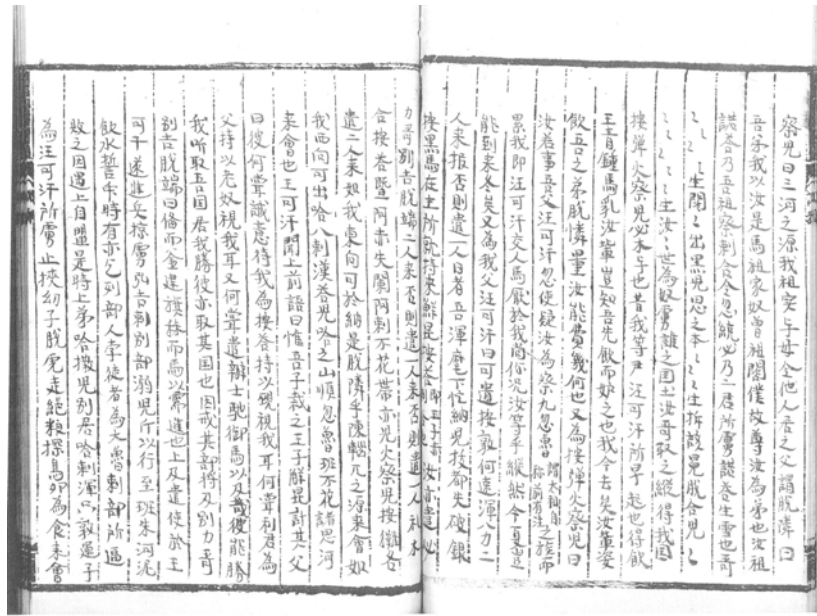 察兒曰三河之源我祖宲与毋令他人居之父謂脫隣曰
吾弟我以汝是馬祖家奴曽祖閽僕故尊汝為弟也汝祖
諾荅乃吾祖察剌合令忽統必乃二君所虜諾荅生雪也哥
〻〻〻生闊〻出黒兒思之本〻〻〻生折該晃脫合兒〻
〻〻〻生汝〻世為奴虜雖之國土汝哥取之縱得我國
按弹火察兒必不与也昔我等尹汪可汗所早起也得飲
王青鍾馬乳汝軰豈知吾先飲而妒之也我今去矣汝軰姿
飲吾之弟脫憐量汝能費幾何也又為按弹火察兒曰
汝若事吾父汪可汗忽使疑汝為察兀忽魯謂太祖自称前有注之族而
累我即汪可汗交人馬厭於我間你况汝等乎縱然今夏豈
能到来冬矣又為我父汪可汗曰可遣按敦何速渾八力二
人来报否則遣一人日者吾渾麾下忙納兒拔都失破銀
按黒馬在主所就持来鮮昆按荅即王子亦剌合也汝亦遣必
力哥別吉脫端二人来否則遣一人来否則遣一人札木
合按荅暨阿赤失闌阿剌不花帯亦兒火察兒按弹各
遣二人来如我東向可於納是脫隣乎陳輟兀之源来會如
我西向可出哈八剌漢荅兒哈之山順忽魯班不花諸思河
来會也王可汗聞上前語曰惟吾子裁之王子鮮昆計其父
曰彼何甞誠意待我為按荅持以覡視我耳何甞利君為
父持以老奴視我耳又何甞遣辯士馳御馬以及我彼能勝
我聴取吾國居我勝彼亦取其國也因戒其部将及別力哥
別吉脫端曰備而食建旗秣而馬以需進也上及遣使於王
可汗遂進兵掠虜弘吉剌別部溺兒所以行至班朱河泥
飲水誓衆時有亦乞列部人孛徒者為火魯剌部所過
敗之因遇上自盟是時上弟哈撒兒別居哈剌渾只敦遲子
為汪可汗所虜止挟幼子脫虎走絶粮探鳥卵為食来會